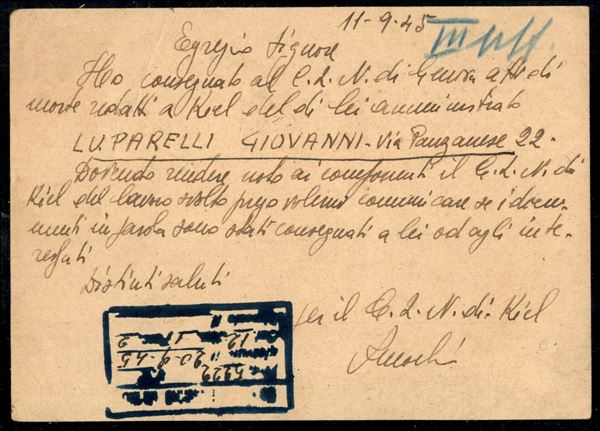 11-9-45
Egregio Signore
Ho consegnato al C.L.N. di Genova atto di
morte redatti a Kiel del di lei amministrato
LUPARELLI GIOVANNI - Via Panzanese 22 -
Dovendo rendere noto ai componenti il C.L.N. di
Kiel del lavoro svolto prego volermi comunicare se i docu-
menti in parola sono stati consegnati a lei od agli inte-
ressati
Distinti saluti
per il C.L.N. di Kiel
12
20-9-45
5322